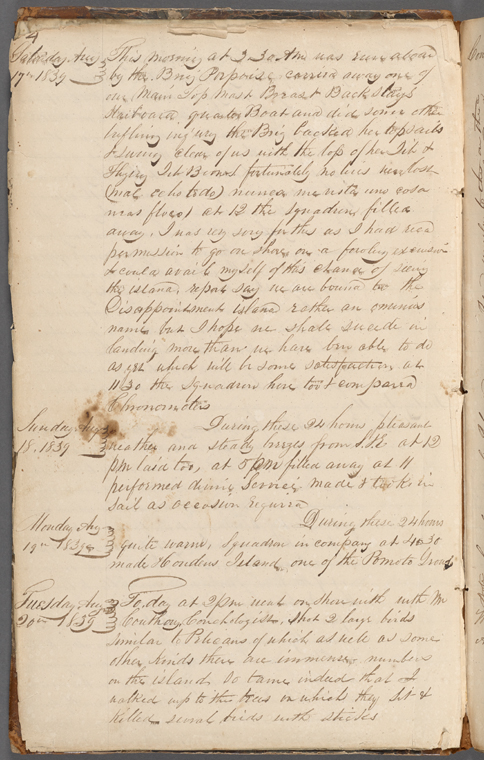 4
Saturday Aug This morning at 3.30 Am was run aboard
17th 1839 by the Brig Porpoise carried away one of
our Main Top Mast Breast Back stays
Starboard quarter Boat and did some other
trifling injury the Brig backed her topsails
& swung clear of us with the loss of her Jib &
Flying Jib Booms fortunately no lives were lost
nunca me usta una cosa
mas floxo) at 12 the Squadron filled
away. I was very sorry for this as I had recd
permission to go on shore on a excursion
& could avail myself of this chance of seeing
the island, report say we are bound to the
Disappointment island rather an ominous
name but I hope we shall succede in
landing more than we have bin able to do
as yet which will be some satisfaction at
11.30 the Squadron hove too & compared
Chronometers
Sunday Aug During these 24 hours pleasant
18. 1839 weather and steady breezes from S.E. at 12
pm laid too, at 5 pm filled away at 11
performed divine Service made & took in
sail as occasion required
Monday Aug During these 24 hours
19th 1839 quite warm, Squadron in company at 4.30
made Hondens Island, one of the Pomoto Group
Tuesday Aug To,day at 2 pm went on shore with with Mr
20th 1839 Couthouy Conchologist, shot 2 large birds
similar to Pelicans of which as well as some
other kinds there are immense numbers
on the island. So tame indeed that I
walked up to the trees on which they sit &
killed several birds with sticks